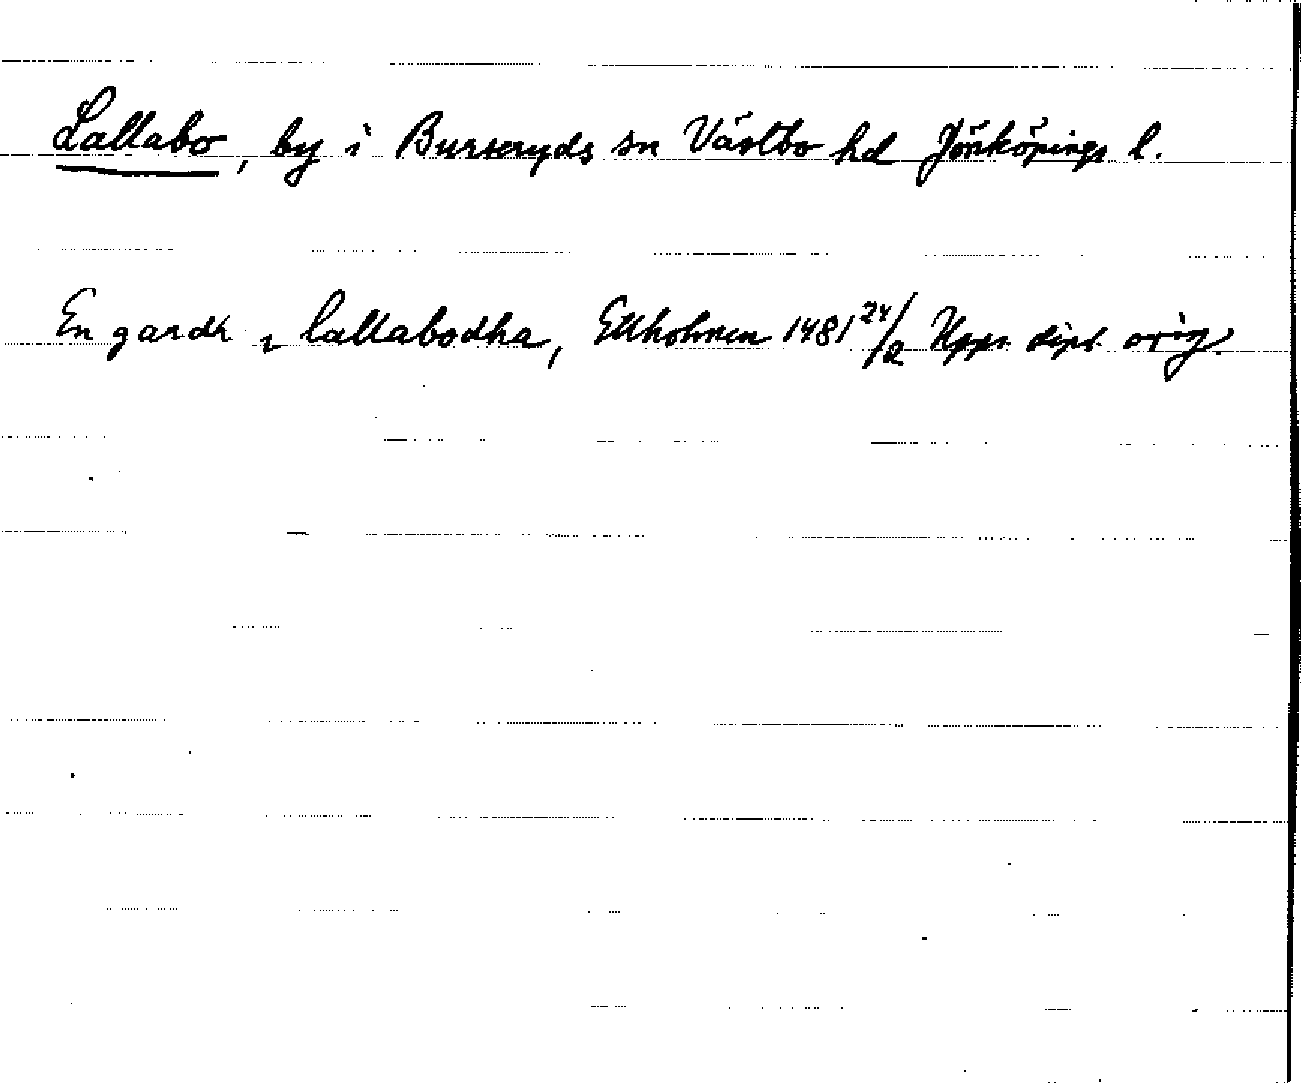 Lallabo, by i Burseryds sn Västbo hd Jönköpings l.
En gardh i lallabodha, Ekholmen 1481 24/2 Upps. dipl. orig.